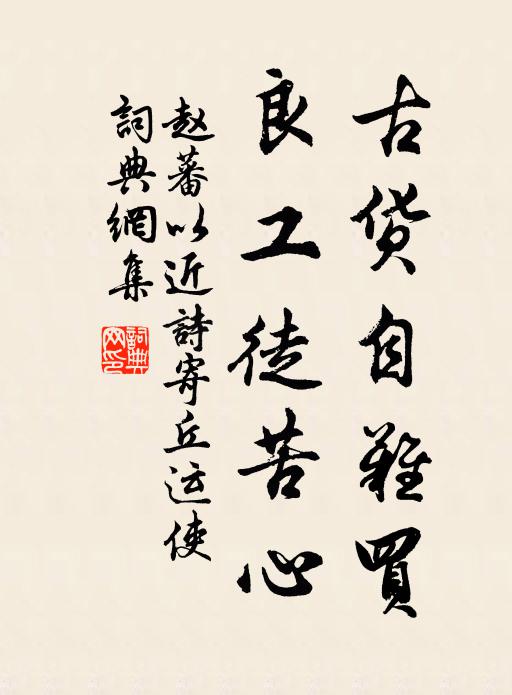 古货自難買
良工徒苦心
赵蕃以近詩寄丘运使
詞典網集
詞典網印